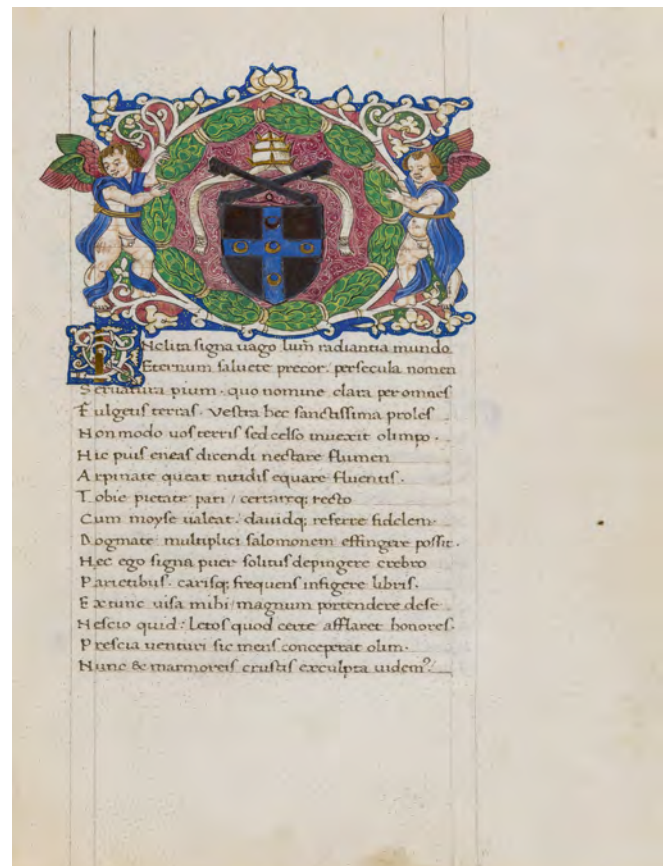 INclita signa uago lum̄ radiantia mundo
Eternum saluete precor. persecula nomen
Seruatura pium. quo nomine clara per omnes
Fulgetis terras. Vestra hec sanctissima proles
Non modo uos terris sed celso inuexit olimpo.
Hic pius eneas dicendi nectare flumen
Arpinate queat nitidis equare fluentis.
Tobie pietate pari / certareq; recto
Cum moyse ualeat. dauidq; referre fidelem
Dogmate multiplici salomonem effingere possit.
Hec ego signa puer solitus depingere crebro
Parietibus. carisq; frequens infigere libris.
Extunc uisa mihi magnum portendere dese
Nescio quid: letos quod certe afflaret honores.
Prescia uenturi sic mens conceperat olim.
Nunc & marmoreis crustis exculpta uidem⁹.